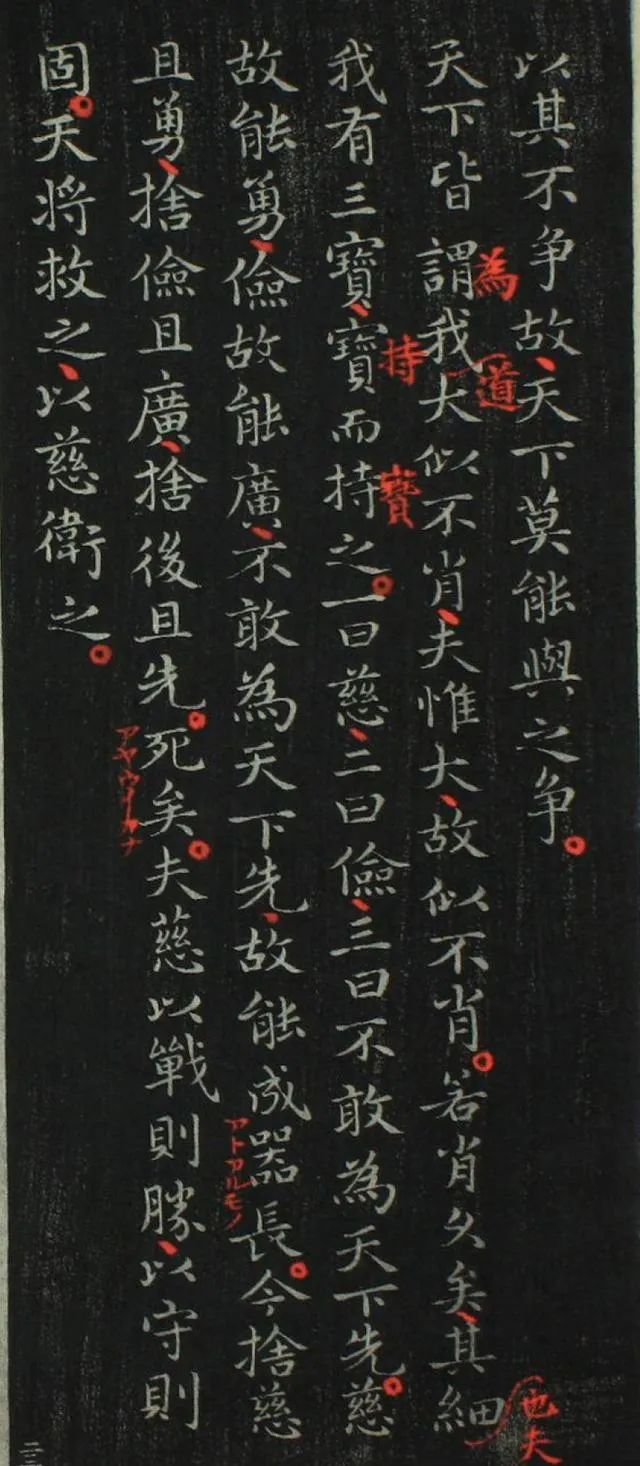 以其不争故天下莫能與之争
天下皆謂我大似不肖夫惟大故似不肖若肖久矣其細
我有三寶寶而持之一曰慈二曰儉三曰不敢為天下先慈
故能勇儉故能廣不敢為天下先故能成器長今捨慈
且勇捨儉且廣捨後且先死矣夫慈以戰則勝以守則
固天將救之以慈衛之
為
道
持
寶
也夫
アトアルモノ